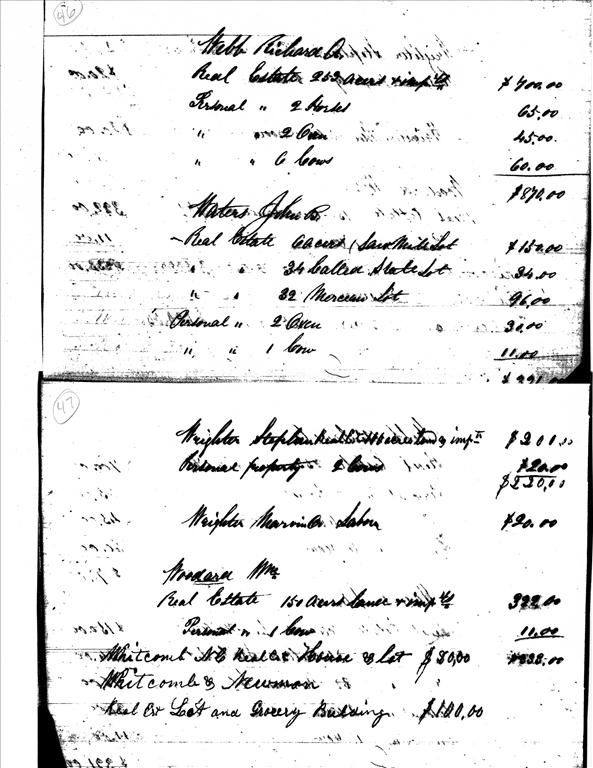 46
Webb Richard O.
Real Estate 252 Acres & impts $700.00
Personal " 2 Horses 65.00
" " 2 Oxen 45.00
" " 6 Cows 60.00
$870.00
Waters John B.
Real Estate 6 acres Saw Mill Lot $150.00
" " 34 Called State Lot 34.00
" " 32 Lot 96.00
Personal " 2 Oxen 30.00
" " 1 Cow 11.00
$321.00
47
Wrighter Stephen Real Est acres land & impts $201.00
Personal property 2 Cows $20.00
$220.00
Wrighter Marvin O. Labor $20.00
Woodard Wm
Real Estate 150 Acres Land & impts 322.00
Personal " 1 Cow 11.00
Whitcomb N C Real Est House & Lot $50.00 $333.00
Whitcomb & Newman
Real Est Lot and Grocery Building $100,00